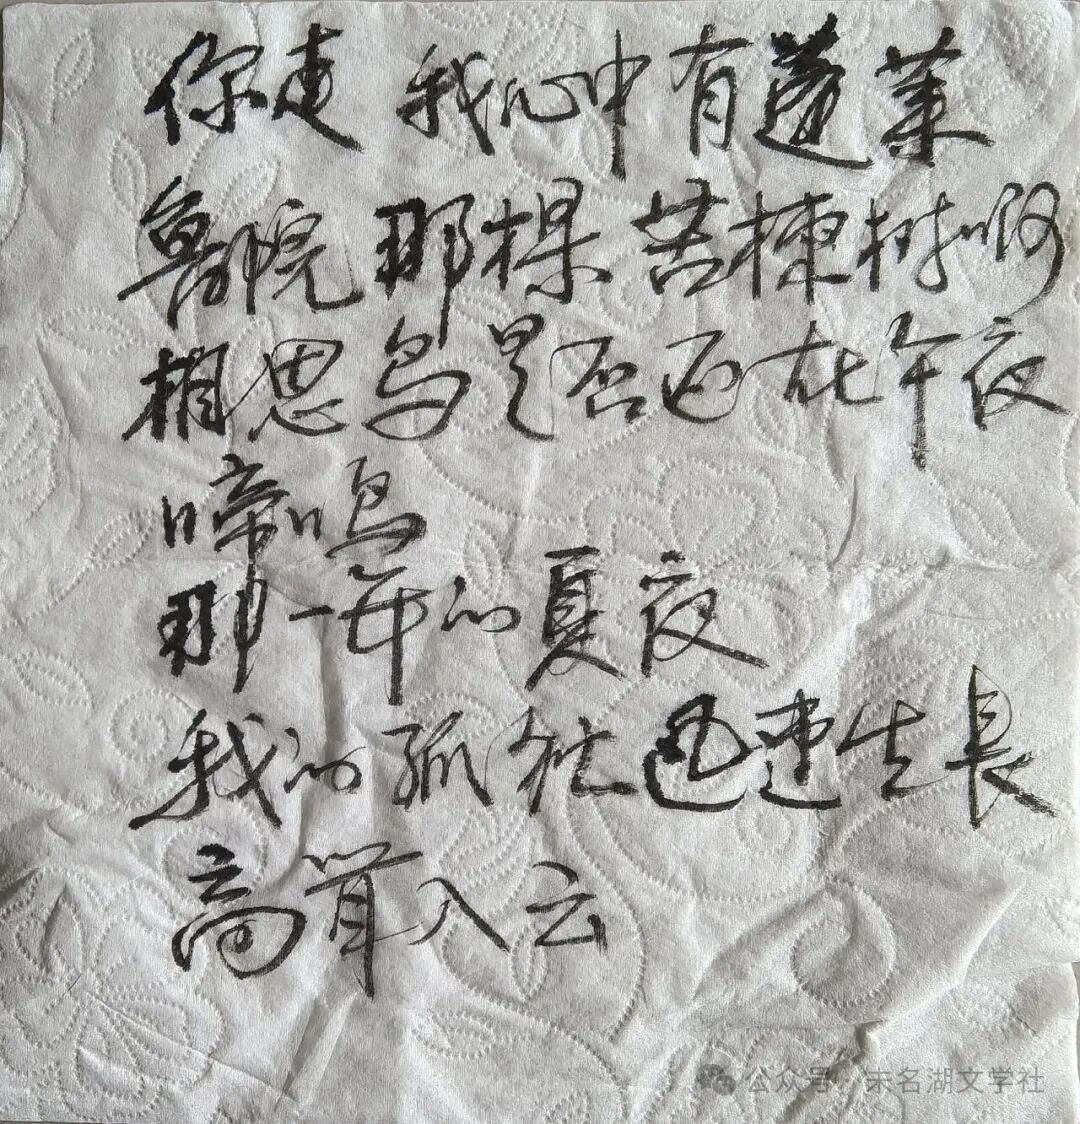 你 我心中有蓬莱
鲁院 那棵 苦楝树啊
相思鸟是否还在午夜
啼鸣
那一年的夏夜
我的孤独迅速生长
高耸入云
公众号:未名湖文学社